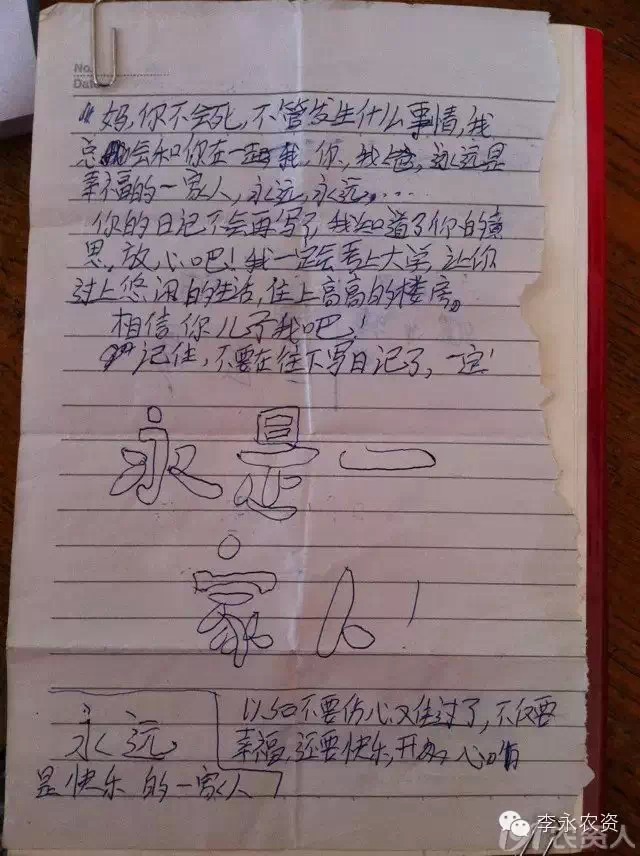 No.
Date
“妈,你不会死,不管发生什么事情,我
总会和你在一起我,你,我爸,永远是
幸福的一家人,永远,永远....
你的日记不会再写了,我知道了你的意
思,放心吧!我一定会考上大学,让你
过上悠闲的生活,住上高高的楼房。
相信你儿子我吧!
记住,不要在往下写日记了,一定!
永是一
家人!
永远
是快乐的一家人
以后不要伤心难过了,不仅要
幸福,还要快乐,开开心心的
李永农资
农资人